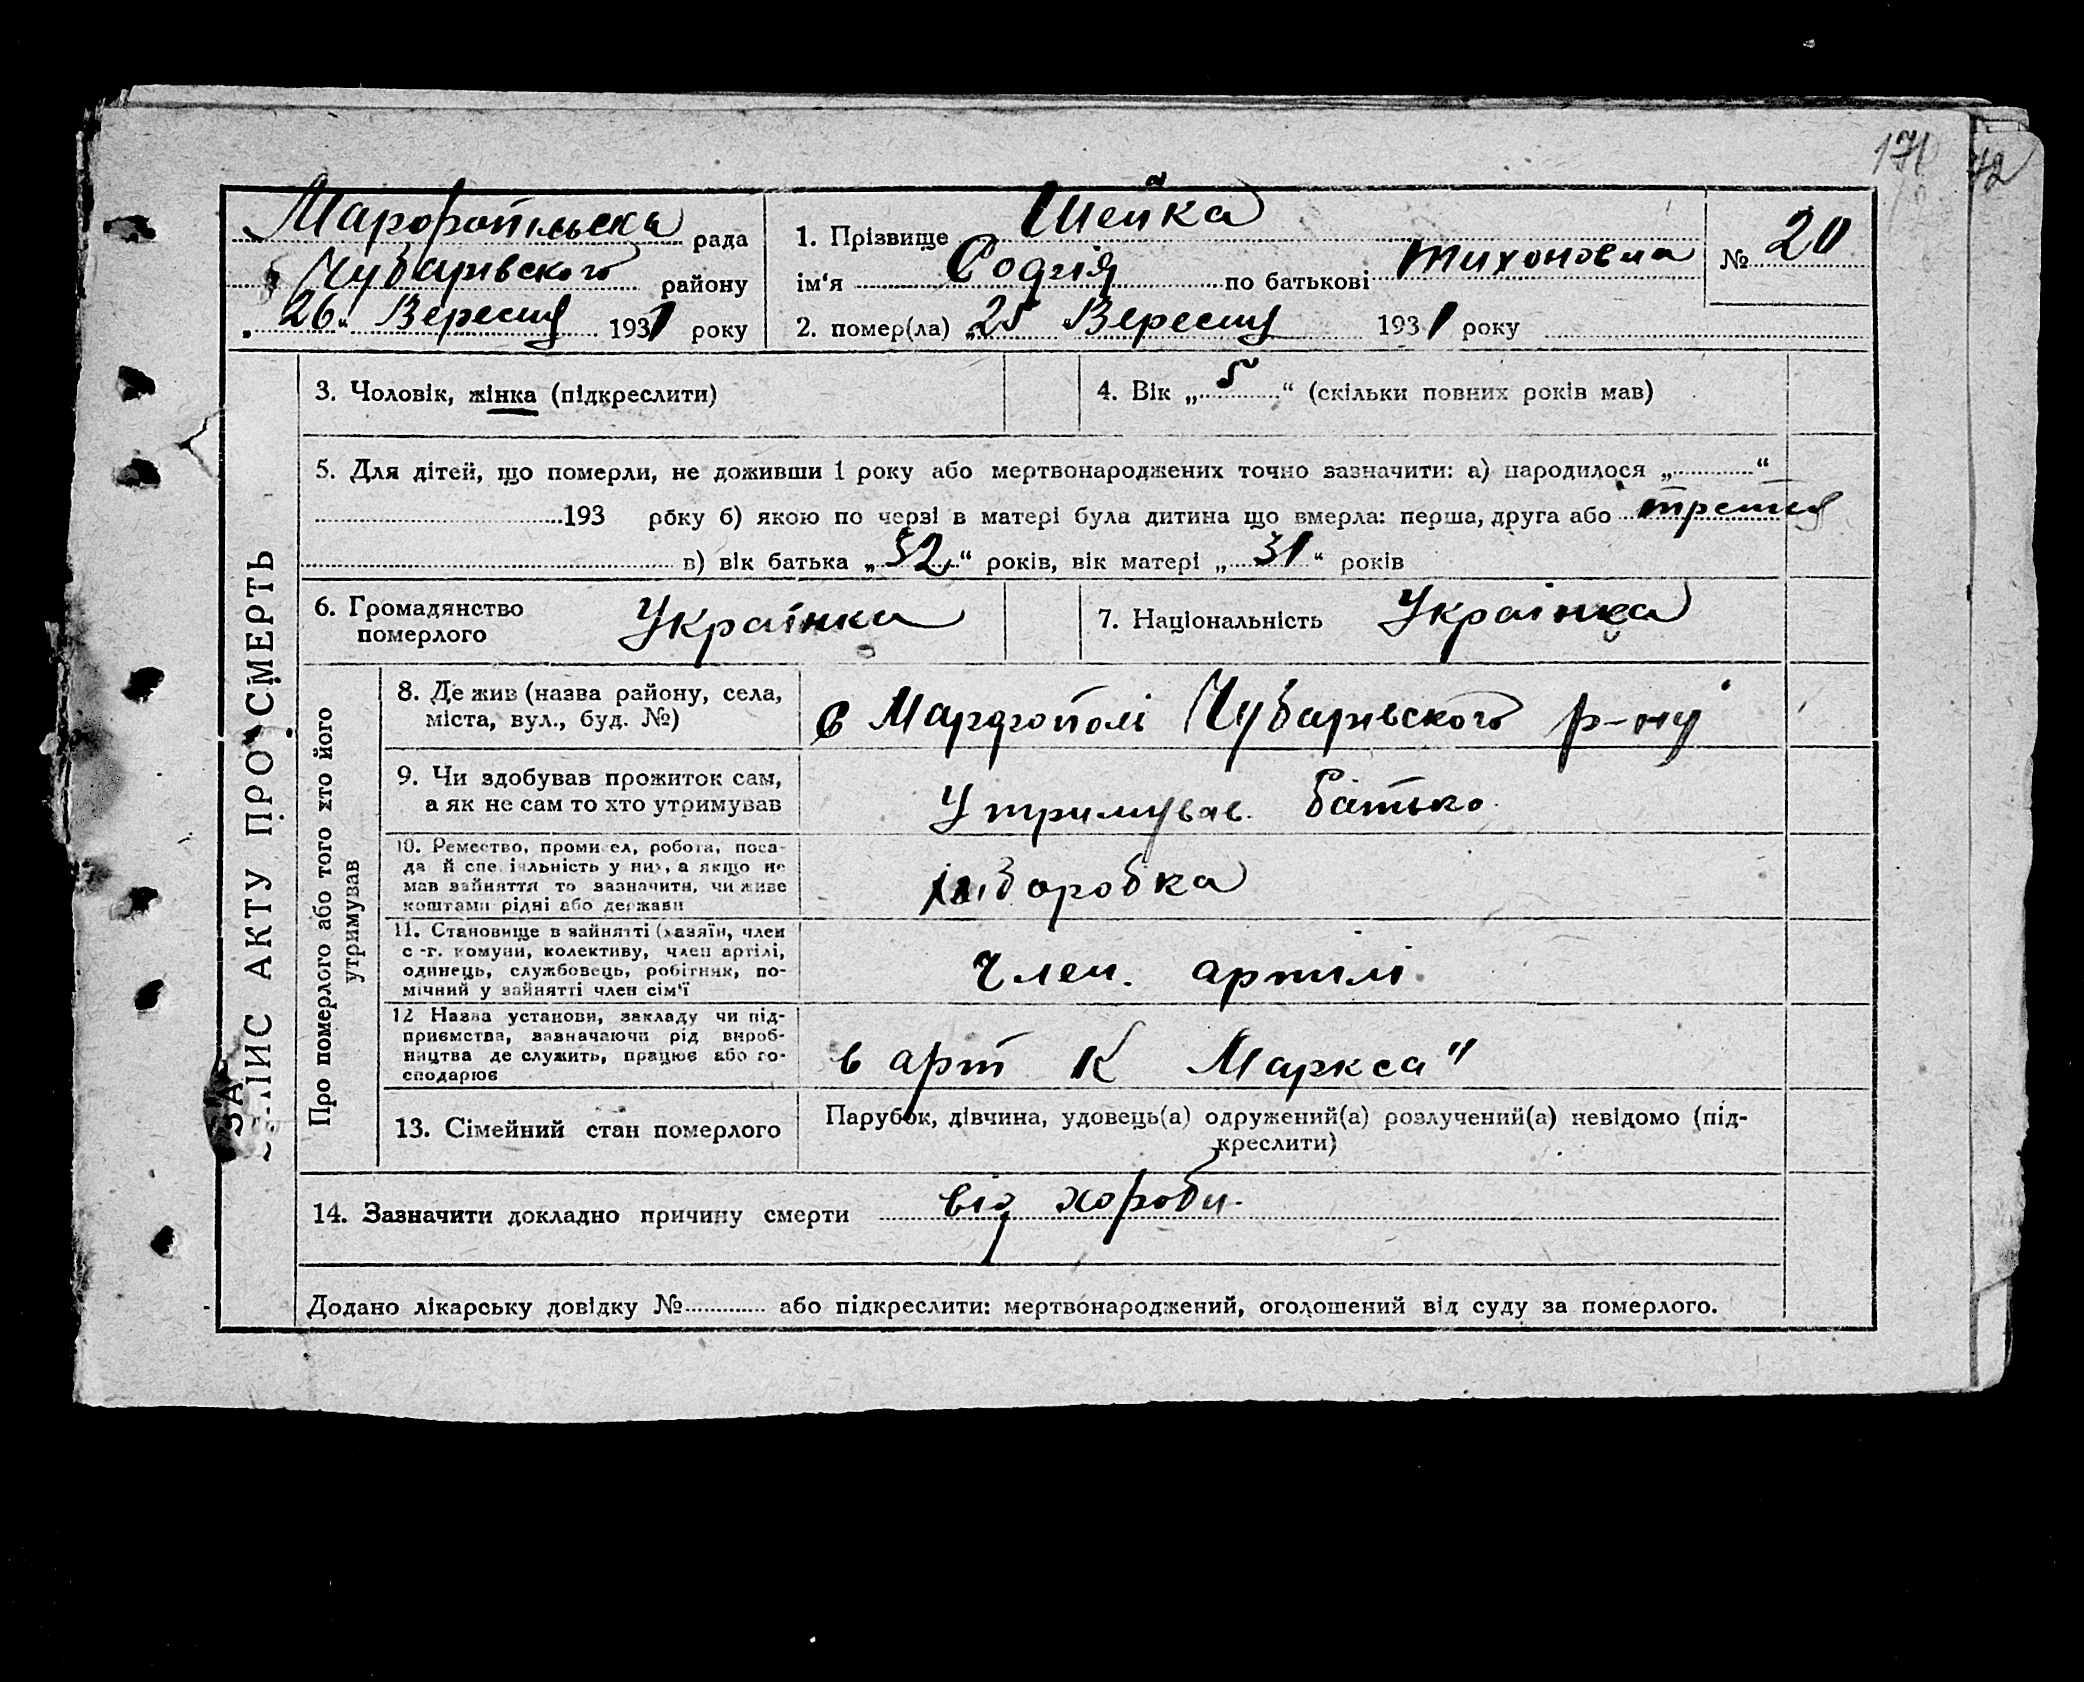 171
42
Марфопільска рада
Чубарівського району
„26“ Вересня 1931 року
1. Прізвище Шейка
ім‘я Софія по батькові Тихоновна
2. помер(ла) „25“ Вересня 1931 року
№ 20
ЗАПИС АКТУ ПРО СМЕРТЬ
3. Чоловік, жінка (підкреслити)
4. Вік „5“ (скільки повних років мав)
5. Для дітей, що померли, не доживши 1 року або мертвонароджених точно зазначити: а) народилося „............“
193 року б) якою по черзі в матері була дитина що вмерла: перша, друга або третя
в) вік батька „32“ років, вік матері „31“ років
6. Громадянство
померлого
Українка
7. Національність Українка
Про померлого або того хто його
утримував
8. Де жив (назва району, села,
міста, вул., буд. №)
в Марфополі Чубарівського р-ну
9. Чи здобував прожиток сам,
а як не сам то хто утримував
Утримував батько
10. Ремество, промисел, робота, поса-
да й спеціяльність у них, а якщо не
мав зайняття то зазначити, чи живе
коштами рідні або держави
хліборобка
11. Становище в зайнятті (хазяїн, член
с.-г. комуни, колективу, член артілі,
одинець, службовець, робітник, по-
мічний у зайнятті член сім‘ї
Член артілі
12 Назва установи, закладу чи під-
приємства, зазначаючи рід вироб-
ництва де служить, працює або го-
сподарює
в арт К Маркса"
13. Сімейний стан померлого
Парубок, дівчина, удовець(а) одружений(а) розлучений(а) невідомо (під-
креслити)
14. Зазначити докладно причину смерти від хороби
Додано лікарську довідку №............ або підкреслити: мертвонароджений, оголошений від суду за померлого.